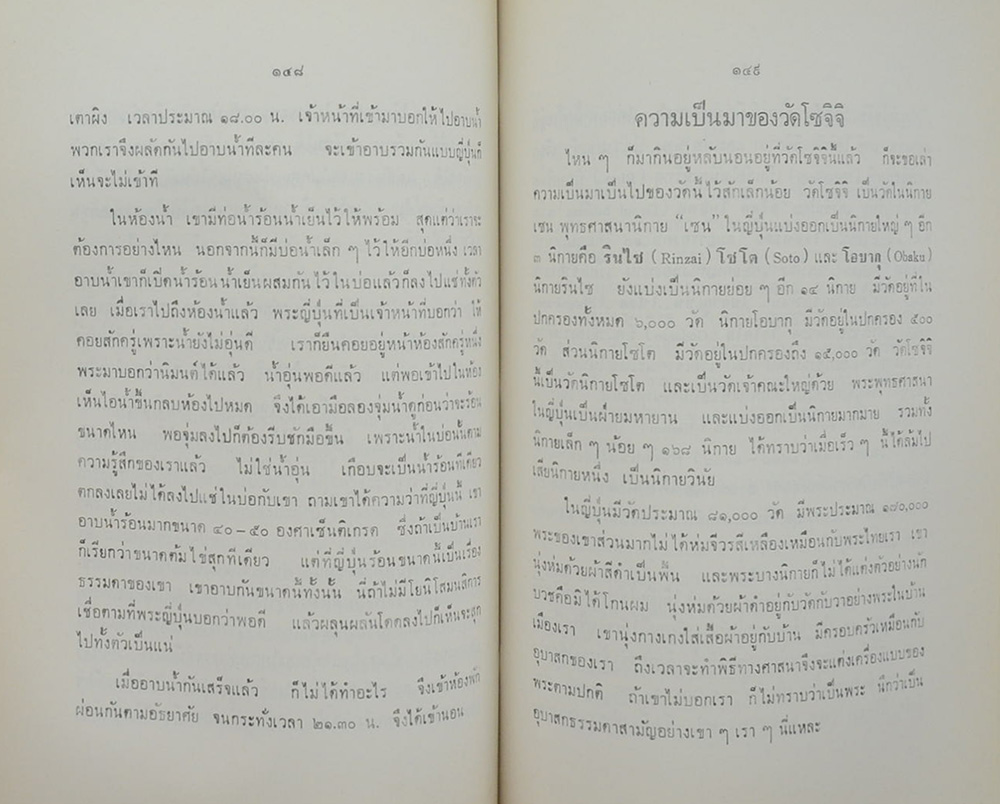 ๑๔๘
เตาผิง เวลาประมาณ ๑๘.๐๐ น. เจ้าหน้าที่เข้ามาบอกให้ไปอาบน้ำ
พวกเราจึงผลัดกันไปอาบน้ำทีละคน จะเข้าอาบรวมกันแบบญี่ปุ่นก็
เห็นจะไม่เข้าที
ในห้องน้ำ เขามีท่อน้ำร้อนน้ำเย็นไว้ให้พร้อม สุดแต่ว่าเราจะ
ต้องการอย่างไหน นอกจากนี้ก็มีบ่อน้ำเล็ก ๆ ไว้ให้อีกบ่อหนึ่ง เวลา
อาบน้ำเขาก็เปิดน้ำร้อนน้ำเย็นผสมกันไว้ในบ่อแล้วก็ลงไปแช่ทั้งตัว
เลย เมื่อเราไปถึงห้องน้ำแล้ว พระญี่ปุ่นที่เป็นเจ้าหน้าที่บอกว่า ให้
คอยสักครู่เพราะน้ำยังไม่อุ่นดี เราก็ยืนคอยอยู่หน้าห้องสักครู่หนึ่ง
พระมาบอกว่านิมนต์ได้แล้ว น้ำอุ่นพอดีแล้ว แต่พอเข้าไปในห้อง
เห็นไอน้ำขึ้นกลบห้องไปหมด จึงได้เอามือลองจุ่มน้ำดูก่อนว่าจะร้อน
ขนาดไหน พอจุ่มลงไปก็ต้องรีบชักมือขึ้น เพราะน้ำในบ่อนั้นตาม
ความรู้สึกของเราแล้ว ไม่ใช่น้ำอุ่น เกือบจะเป็นน้ำร้อนทีเดียว
ตกลงเลยไม่ได้ลงไปแช่ในบ่อกับเขา ถามเขาได้ความว่าที่ญี่ปุ่นนี้ เขา
อาบน้ำร้อนมากขนาด ๔๐–๕๐ องศาเซ็นติเกรด ซึ่งถ้าเป็นบ้านเรา
ก็เรียกว่าขนาดต้มไข่สุกทีเดียว แต่ที่ญี่ปุ่นร้อนขนาดนี้เป็นเรื่อง
ธรรมดาของเขา เขาอาบกันขนาดนี้ทั้งนั้น นี่ถ้าไม่มีโยนิโสมนสิการ
เชื่อตามที่พระญี่ปุ่นบอกว่าพอดี แล้วผลุนผลันโดดลงไปก็เห็นจะสุก
ไปทั้งตัวเป็นแน่
เมื่ออาบน้ำกันเสร็จแล้ว ก็ไม่ได้ทำอะไร จึงเข้าห้องพัก
ผ่อนกันตามอัธยาศัย จนกระทั่งเวลา ๒๑.๓๐ น. จึงได้เข้านอน
๑๔๙
ความเป็นมาของวัดโซจิจิ
ไหน ๆ ก็มากินอยู่หลับนอนอยู่ที่วัดโซจิจินี้แล้ว ก็จะขอเล่า
ความเป็นมาเป็นไปของวัดนี้ไว้สักเล็กน้อย วัดโซจิจิ เป็นวัดในนิกาย
เซน พุทธศาสนานิกาย “เซน” ในญี่ปุ่นแบ่งออกเป็นนิกายใหญ่ ๆ อีก
๓ นิกายคือ รินไซ (Rinzai) โซโต (Soto) และ โอบากุ (Obaku)
นิกายรินไซ ยังแบ่งเป็นนิกายย่อย ๆ อีก ๑๔ นิกาย มีวัดอยู่ที่ใน
ปกครองทั้งหมด ๖,๐๐๐ วัด นิกายโอบากุ มีวัดอยู่ในปกครอง ๕๐๐
วัด ส่วนนิกายโซโต มีวัดอยู่ในปกครองถึง ๑๕,๐๐๐ วัด วัดโซจิจิ
นี้เป็นวัดนิกายโซโต และเป็นวัดเจ้าคณะใหญ่ด้วย พระพุทธศาสนา
ในญี่ปุ่นเป็นฝ่ายมหายาน และแบ่งออกเป็นนิกายมากมาย รวมทั้ง
นิกายเล็ก ๆ น้อย ๆ ๑๖๘ นิกาย ได้ทราบว่าเมื่อเร็ว ๆ นี้ได้ล้มไป
เสียนิกายหนึ่ง เป็นนิกายวินัย
ในญี่ปุ่นมีวัดประมาณ ๘๑,๐๐๐ วัด มีพระประมาณ ๑๘๐,๐๐๐
พระของเขาส่วนมากไม่ได้ห่มจีวรสีเหลืองเหมือนกับพระไทยเรา เขา
นุ่งห่มด้วยผ้าสีดำเป็นพื้น และพระบางนิกายก็ไม่ได้แต่งตัวอย่างนัก
บวชคือมิได้โกนผม นุ่งห่มด้วยผ้าดำอยู่กับวัดกับวาอย่างพระในบ้าน
เมืองเรา เขานุ่งกางเกงใส่เสื้อผ้าอยู่กับบ้าน มีครอบครัวเหมือนกับ
อุบาสกของเรา ถึงเวลาจะทำพิธีทางศาสนาจึงจะแต่งเครื่องแบบของ
พระตามปกติ ถ้าเขาไม่บอกเรา ก็ไม่ทราบว่าเป็นพระ นึกว่าเป็น
อุบาสกธรรมดาสามัญอย่างเขา ๆ เรา ๆ นี่แหละ